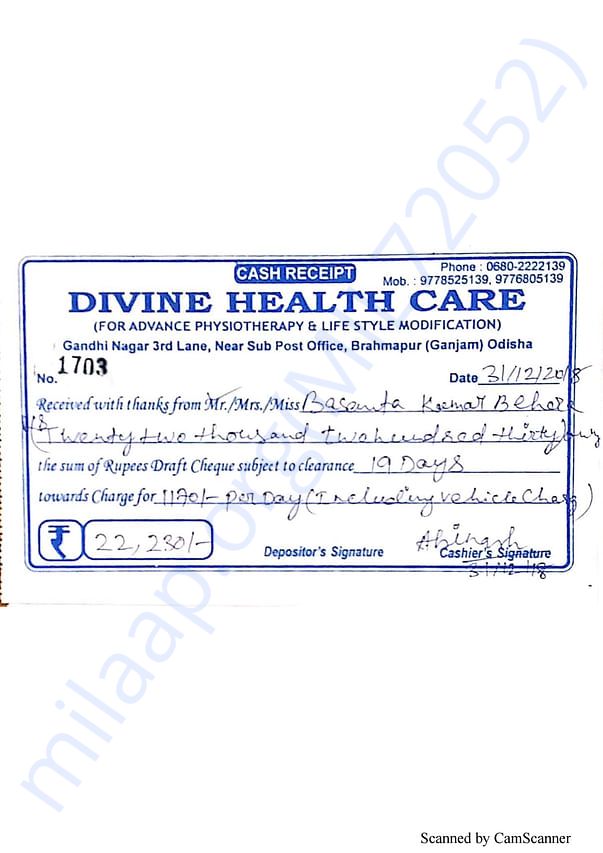 CASH RECEIPT
Phone : 0680-2222139
Mob. : 9778525139, 9776805139
DIVINE HEALTH CARE
(FOR ADVANCE PHYSIOTHERAPY & LIFE STYLE MODIFICATION)
Gandhi Nagar 3rd Lane, Near Sub Post Office, Brahmapur (Ganjam) Odisha
No. 1703 Date 31/12/2018
Received with thanks from Mr./Mrs./Miss Basanta Kumar Behera
(Twenty two thousand two hundred thirty
the sum of Rupees Draft Cheque subject to clearance 19 Days
towards Charge for 1170/- Per Day (Including vehicle Charg)
₹ 22,230/- Depositor's Signature Abinash Cashier's Signature
31/12/18
milaap.org
72052)
Scanned by CamScanner